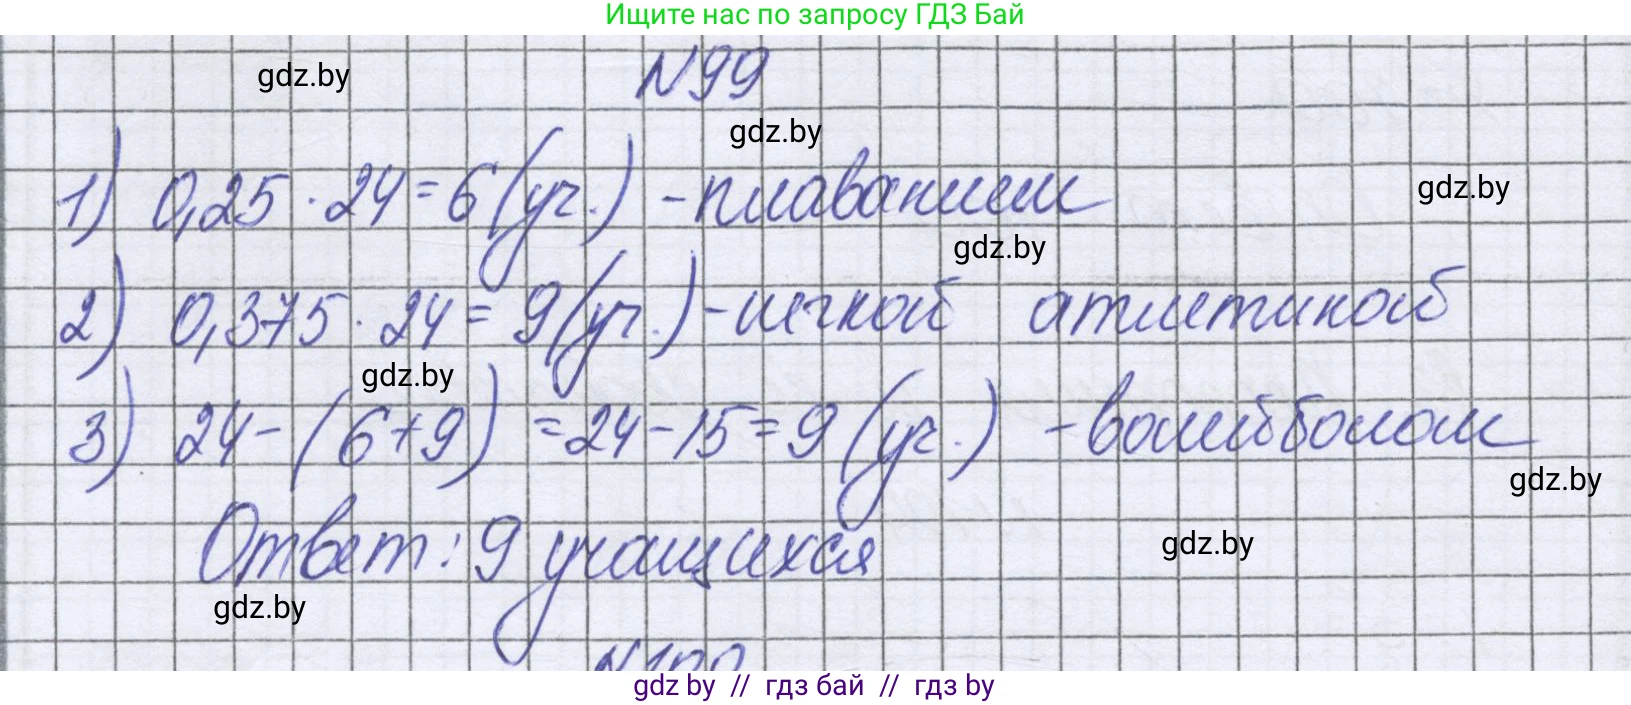 Ищите нас по запросу ГДЗ Бай
N99
gdz.by
gdz.by
1) 0,25 · 24 = 6 (уч.) - плаванием
gdz.by
gdz.by
2) 0,375 · 24 = 9 (уч.) - легкой атлетикой
gdz.by
3) 24 - (6 + 9) = 24 - 15 = 9 (уч.) - волейболом
gdz.by
Ответ: 9 учащихся
gdz.by
gdz.by
N100
gdz by // гдз бай // гдз by